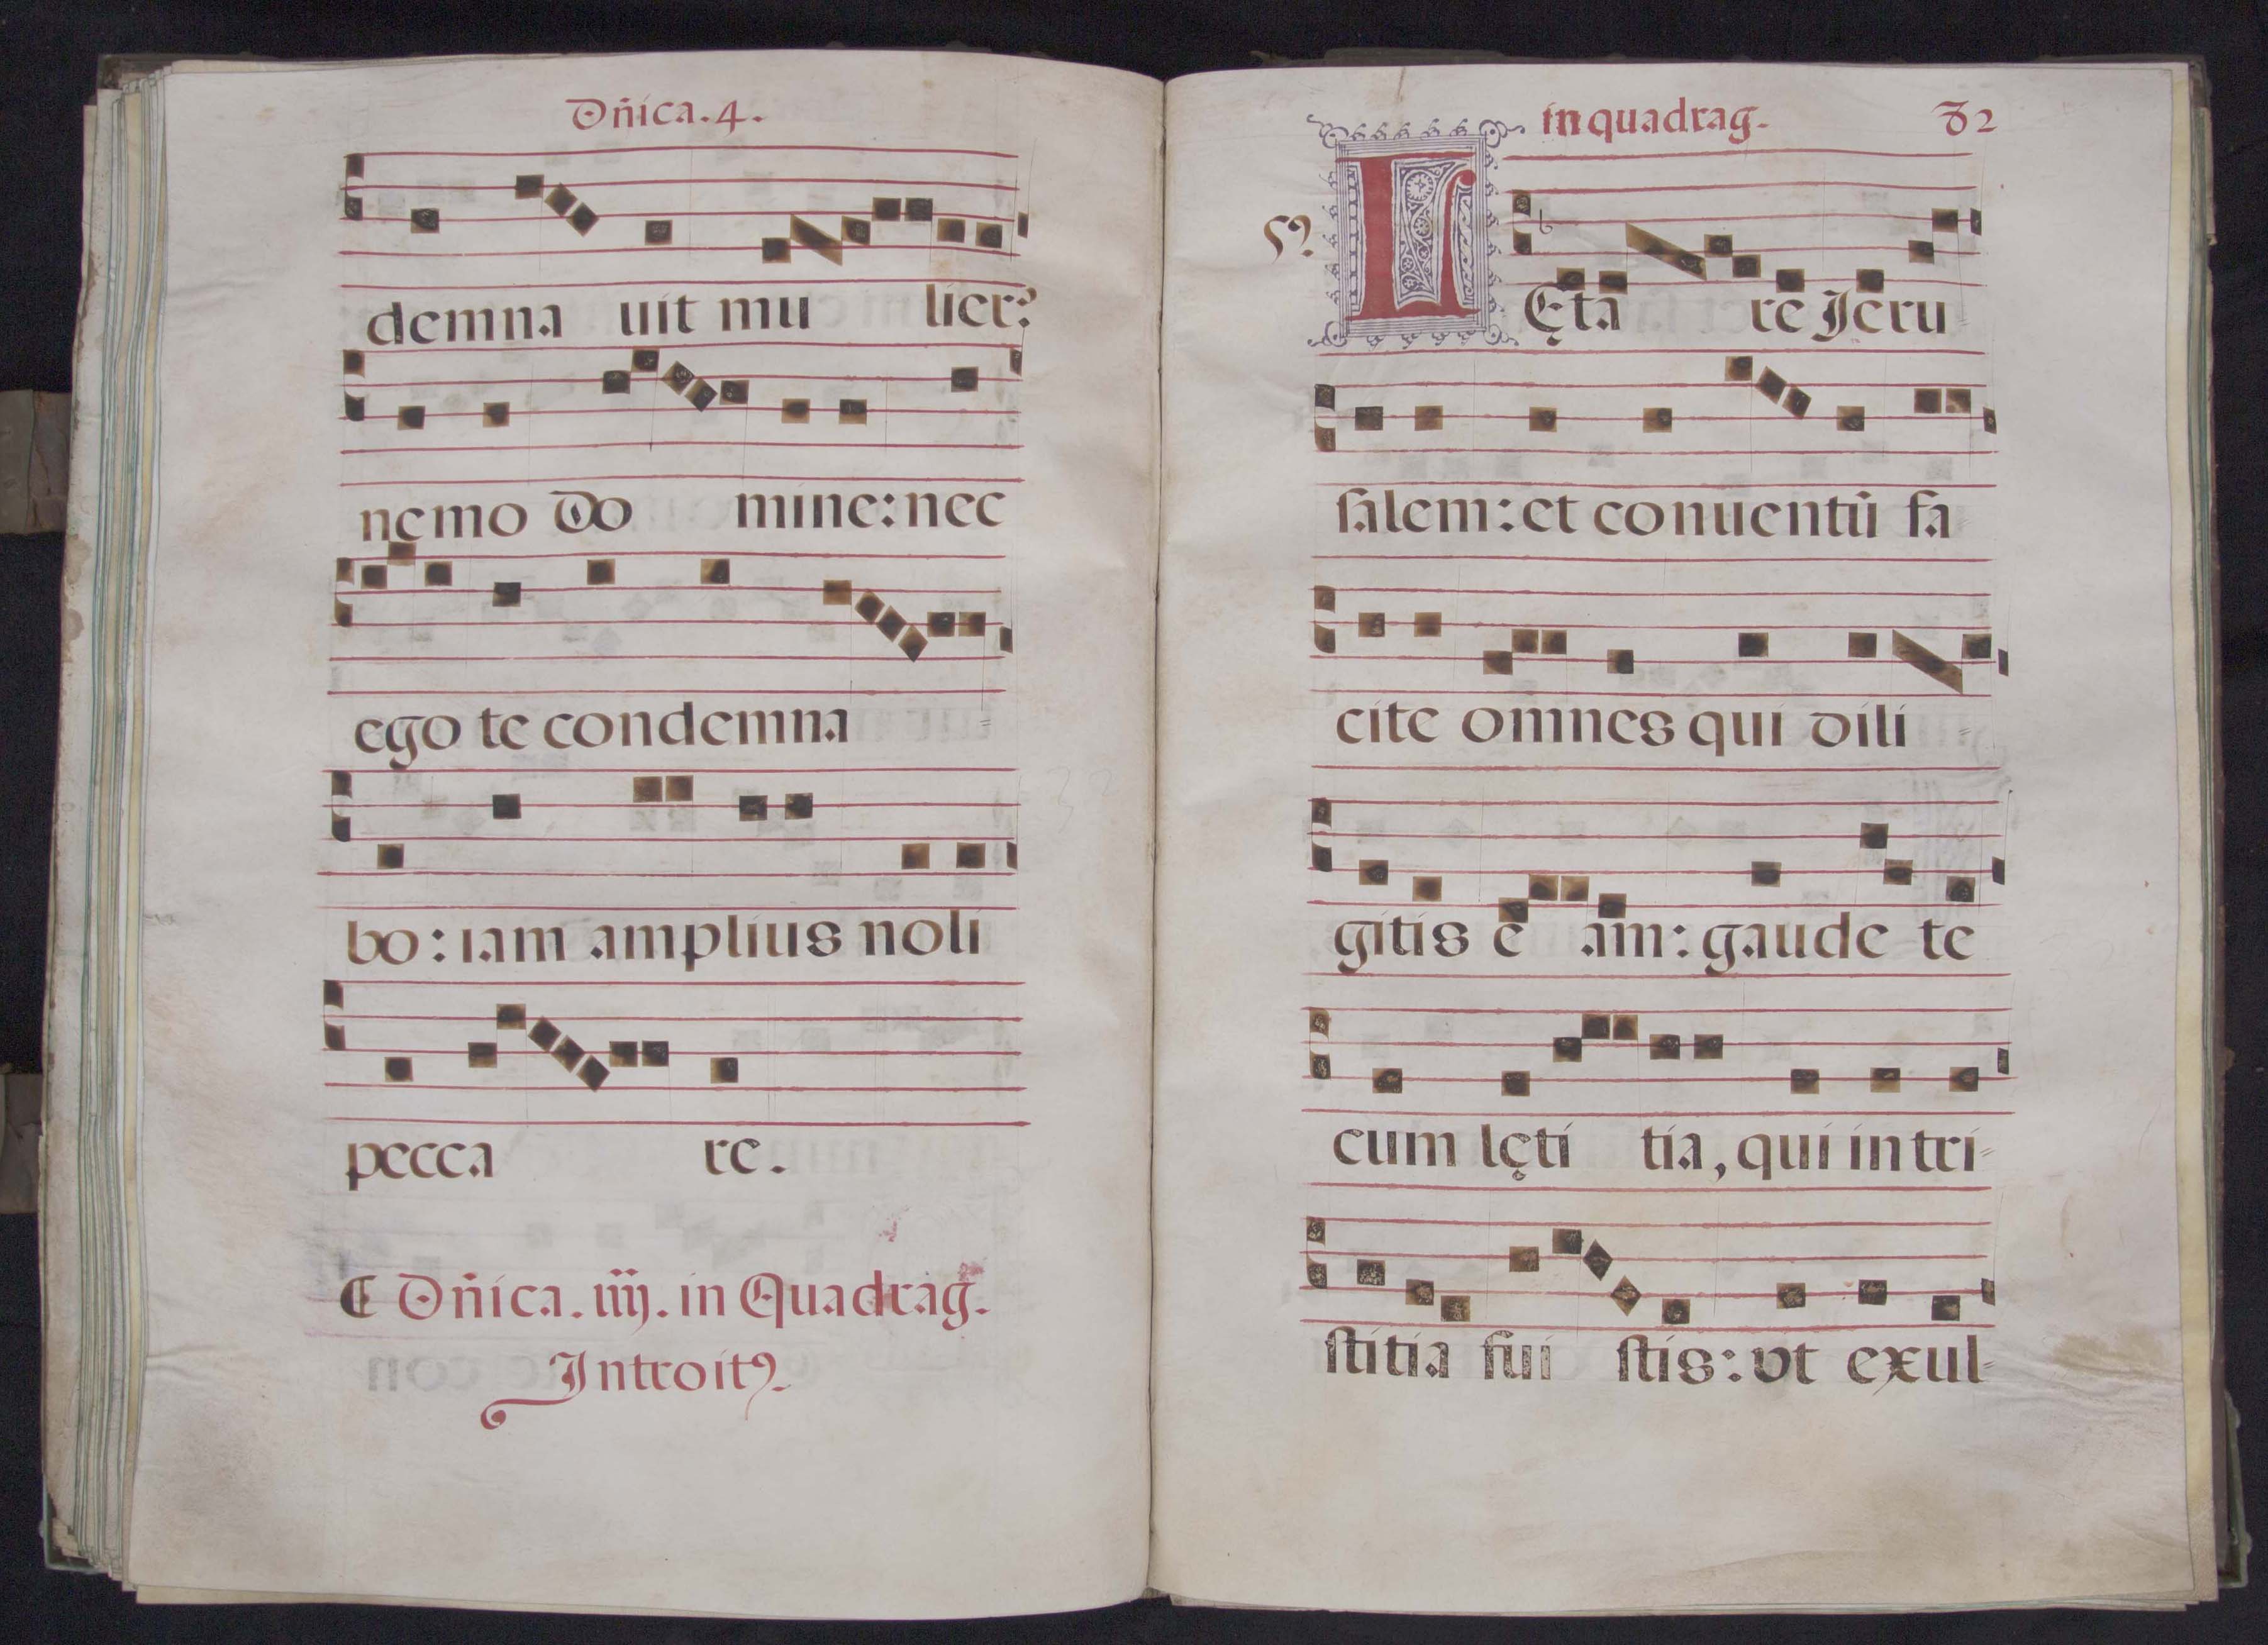 Dñica.4.
demna uit mu lier?
nemo Do mine: nec
ego te condemna
bo: iam amplius noli
pecca re.
C Dñica. iiij. in Quadrag.
Introitꝯ.
in quadrag. 32
LĘta re Jeru
salem: et conuentũ fa
cite omnes qui dili
gitis e am: gaude te
cum lęti tia, qui in tri-
stitia fui stis: vt exul-